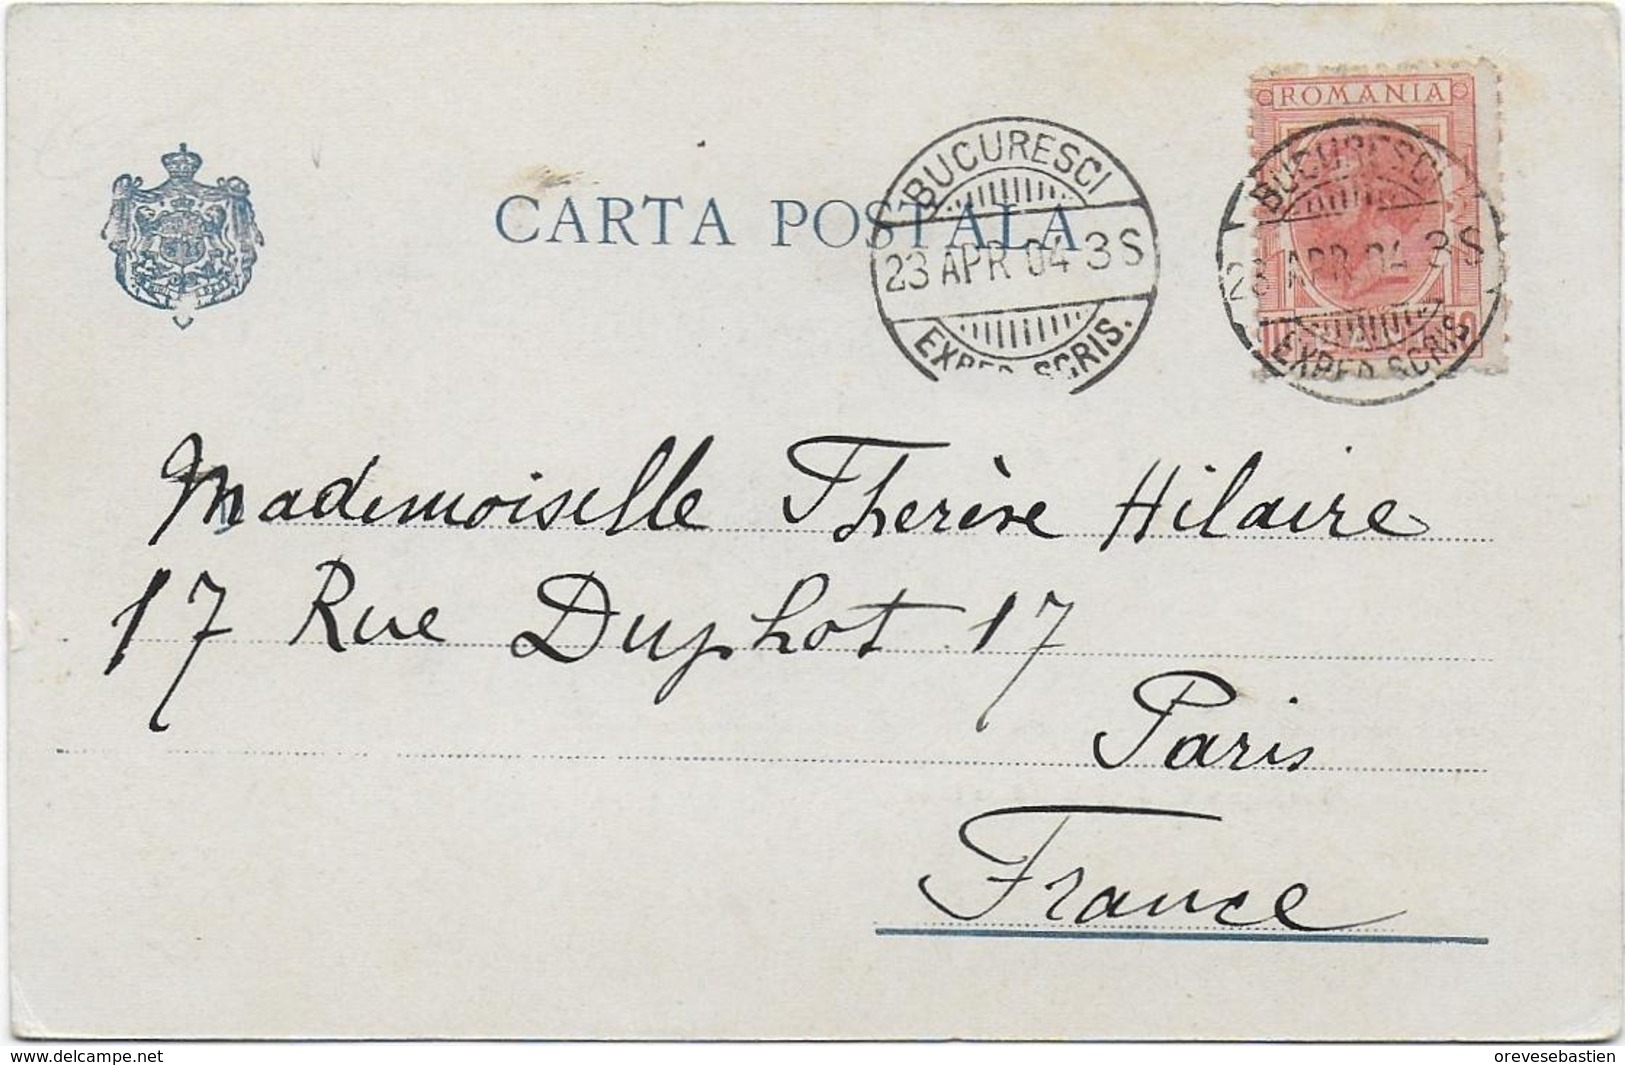 ROMANIA
BUCURESCI
23 APR 04 3 S
EXPED. SCRIS.
BUCURESCI
23 APR 04 3 S
EXPED. SCRIS
CARTA POSTALA
Mademoiselle Therèse Hilaire
17 Rue Duphot 17
Paris
France
www.delcampe.net
orevesebastien